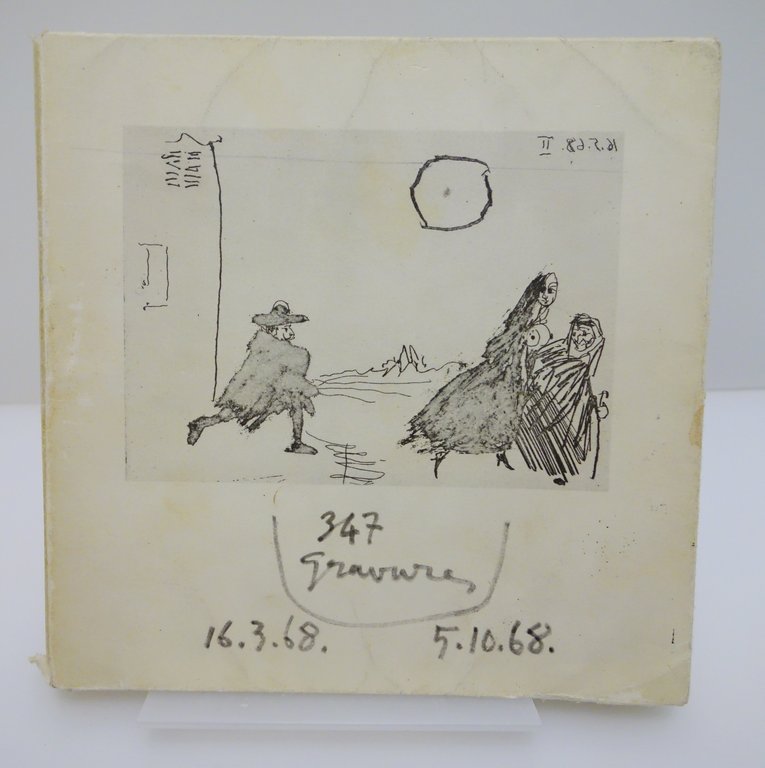 16.5.68. II
347
gravures
16.3.68. 5.10.68.